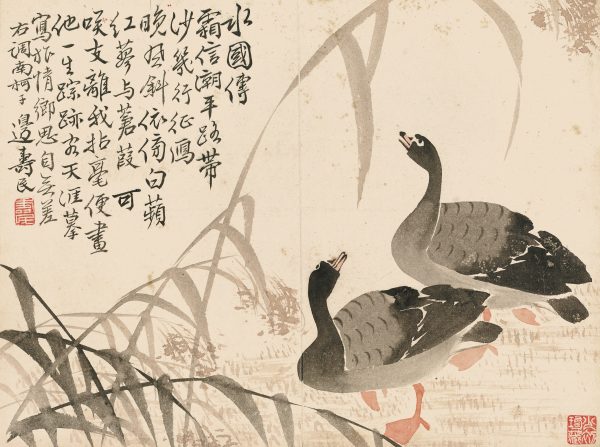 水國傳
霜信潮平路帶
沙幾行征鴈
晚風斜依傍白蘋
紅蓼与蒼葭可
咲支離我拈毫便畫
他一生踪跡在天涯摹
寫旅情鄉思自無差
右調南柯子 邊壽民
壽民